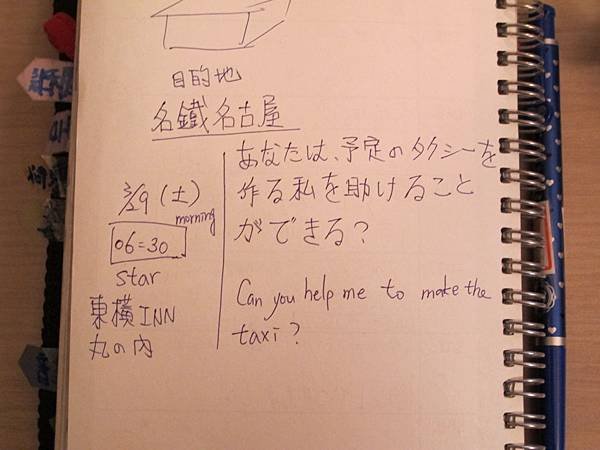 目的地
名鐵名古屋
3/29 (土)
morning
06:30
star
東橫INN
丸の内
あなたは、予定のタクシーを
作る私を助けること
ができる?
Can you help me to make the
taxi?